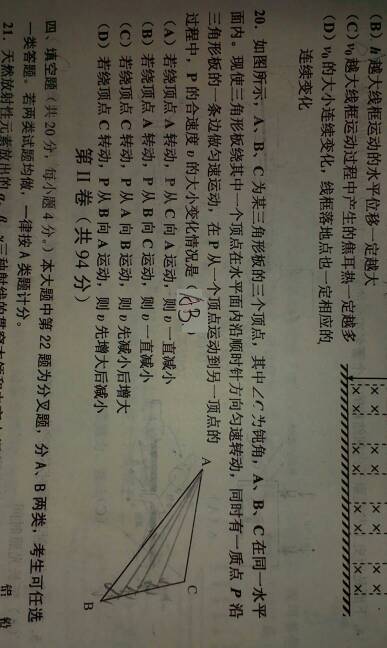 (B) h 越大线框运动的水平位移一定越大
(C) v₀ 越大线框运动过程中产生的焦耳热一定越多
(D) v₀ 的大小连续变化，线框落地点也一定相应的
连续变化
20. 如图所示，A、B、C 为某三角形板的三个顶点，其中∠C 为钝角，A、B、C 在同一水平
面内。现使三角形板绕其中一个顶点在水平面内沿顺时针方向匀速转动，同时有一质点 P 沿
三角形板的一条边做匀速运动，在 P 从一个顶点运动到另一顶点的
过程中，P 的合速度 v 的大小变化情况是（AB）
(A) 若绕顶点 A 转动，P 从 C 向 A 运动，则 v 一直减小
(B) 若绕顶点 A 转动，P 从 B 向 C 运动，则 v 一直减小
(C) 若绕顶点 C 转动，P 从 A 向 B 运动，则 v 先减小后增大
(D) 若绕顶点 C 转动，P 从 B 向 A 运动，则 v 先增大后减小
A
C
B
第 II 卷（共 94 分）
四、填空题（共 20 分，每小题 4 分。）本大题中第 22 题为分叉题，分 A、B 两类，考生可任选
一类答题。若两类试题均做，一律按 A 类题计分。
21. 天然放射性元素放出的 α、β、γ三种射线的贯穿
铝 铅